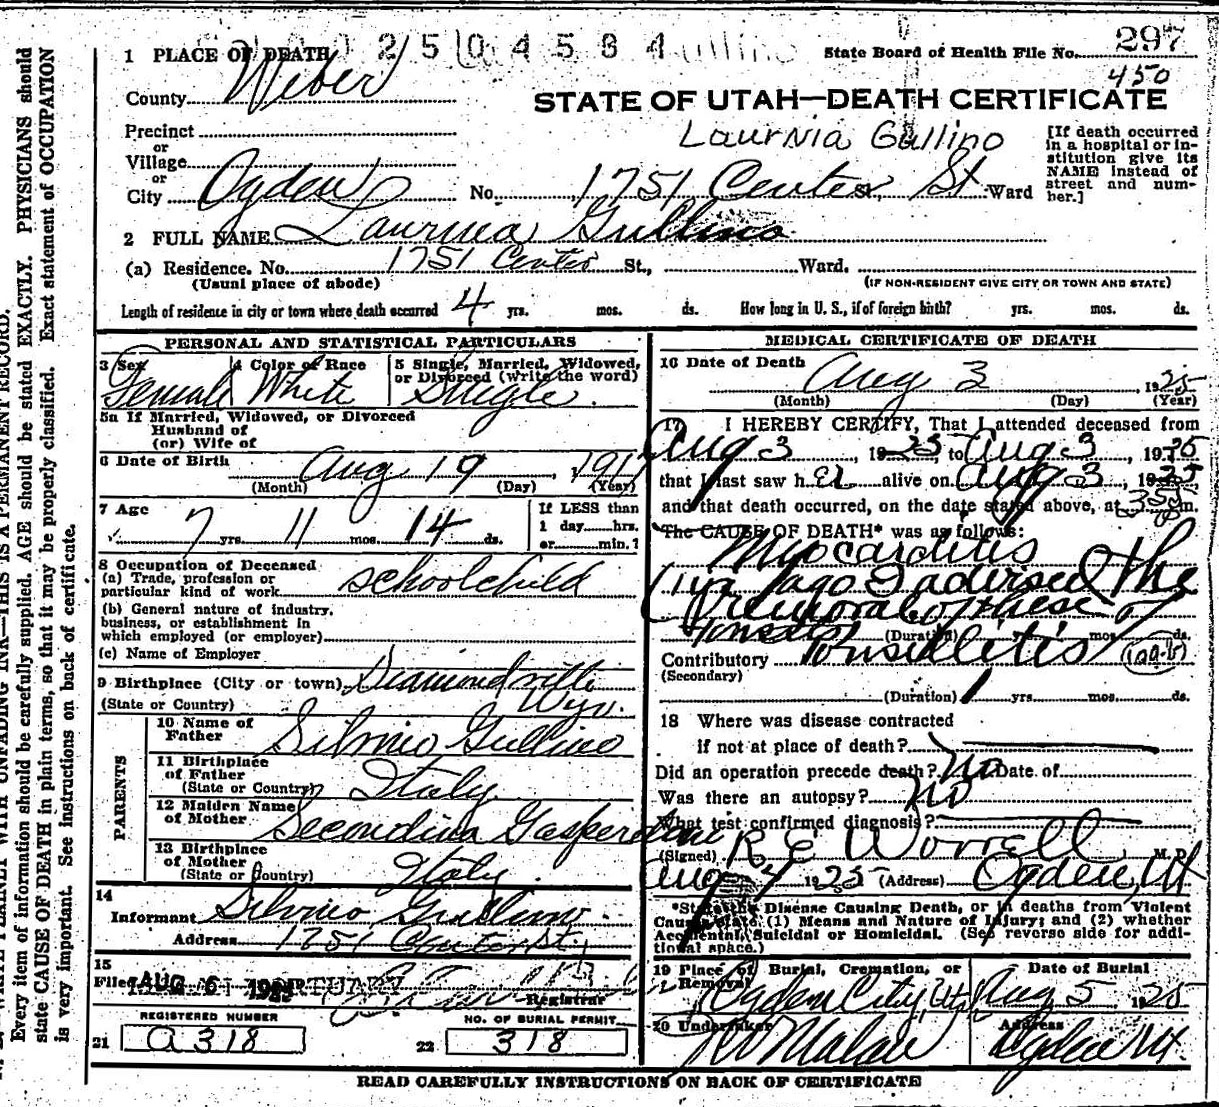 025 04584
State Board of Health File No. 297
1 PLACE OF DEATH
450
County Weber
STATE OF UTAH—DEATH CERTIFICATE
Precinct
or
Village
or
City Ogden No. 1751 Center St., St. Ward
Laurnia Gullino
[If death occurred
in a hospital or in-
stitution give its
NAME instead of
street and num-
ber.]
2 FULL NAME Laurnia Gullino
(a) Residence. No. 1751 Center St., Ward.
(Usual place of abode)
(IF NON-RESIDENT GIVE CITY OR TOWN AND STATE)
Length of residence in city or town where death occurred 4 yrs. mos. ds. How long in U. S., if of foreign birth? yrs. mos. ds.
PERSONAL AND STATISTICAL PARTICULARS
3 Sex Female
4 Color or Race White
5 Single, Married, Widowed,
or Divorced (write the word)
Single.
5a If Married, Widowed, or Divorced
Husband of
(or) Wife of
6 Date of Birth Aug 19, 1917
(Month) (Day) (Year)
7 Age 7 yrs. 11 mos. 14 ds.
If LESS than
1 day hrs.
or min.?
8 Occupation of Deceased
(a) Trade, profession or
particular kind of work schoolchild
(b) General nature of industry,
business, or establishment in
which employed (or employer)
(c) Name of Employer
9 Birthplace (City or town) Diamondville
(State or Country) Wyo.
PARENTS
10 Name of
Father Silvnio Gullino
11 Birthplace
of Father
(State or Country) Italy
12 Maiden Name
of Mother Secondina
13 Birthplace
of Mother
(State or Country) Italy.
14
Informant Silvnio Gullino.
Address 1751 Center St.,
15
Filed AUG 6 Registrar
REGISTERED NUMBER
21 a318
NO. OF BURIAL PERMIT
22 318
MEDICAL CERTIFICATE OF DEATH
16 Date of Death
Aug 3, 1925
(Month) (Day) (Year)
17 I HEREBY CERTIFY, That I attended deceased from
Aug 3, 1925, to Aug 3, 1925
that I last saw her alive on Aug 3, 1925,
and that death occurred, on the date stated above, at 355 P m.
The CAUSE OF DEATH* was as follows:
Myocarditis
(1 yr ago I advised the
removal of these
tonsils)
(Duration) yrs. mos. ds.
Contributory Tonsillitis (109-b)
(Secondary)
(Duration) 1 yrs. mos. ds.
18 Where was disease contracted
if not at place of death?
Did an operation precede death? No Date of
Was there an autopsy? No
What test confirmed diagnosis?
(Signed) R E Worrell, M. D.
Aug 4 1925 (Address) Ogden, Ut
*State the Disease Causing Death, or in deaths from Violent
Causes state (1) Means and Nature of Injury; and (2) whether
Accidental, Suicidal or Homicidal. (See reverse side for addi-
tional space.)
19 Place of Burial, Cremation, or
Removal
Ogden City, Ut
Date of Burial
Aug 5 1925
20 Undertaker
Malan
Address
Ogden Ut.
READ CAREFULLY INSTRUCTIONS ON BACK OF CERTIFICATE
WRITE PLAINLY WITH UNFADING INK—THIS IS A PERMANENT RECORD.
Every item of information should be carefully supplied. AGE should be stated EXACTLY. PHYSICIANS should
state CAUSE OF DEATH in plain terms, so that it may be properly classified. Exact statement of OCCUPATION
is very important. See instructions on back of certificate.